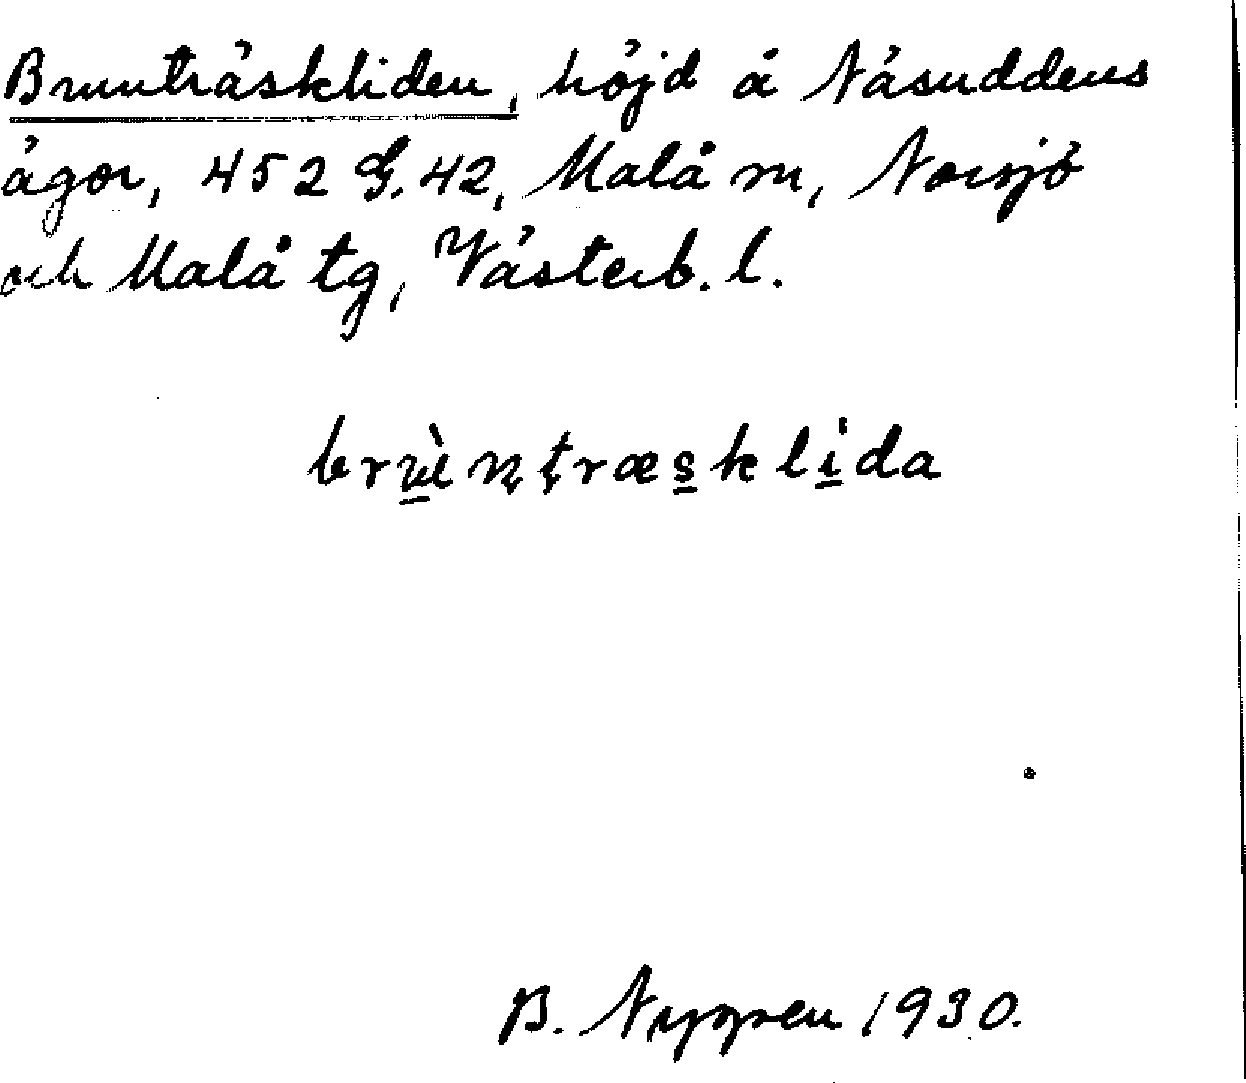 Brunträskliden, höjd å Näsuddens
ägor, 452 G. 42, Malå sn, Norsjö
och Malå tg, Västerb. l.
brùntræsklída
B. Nygren 1930.